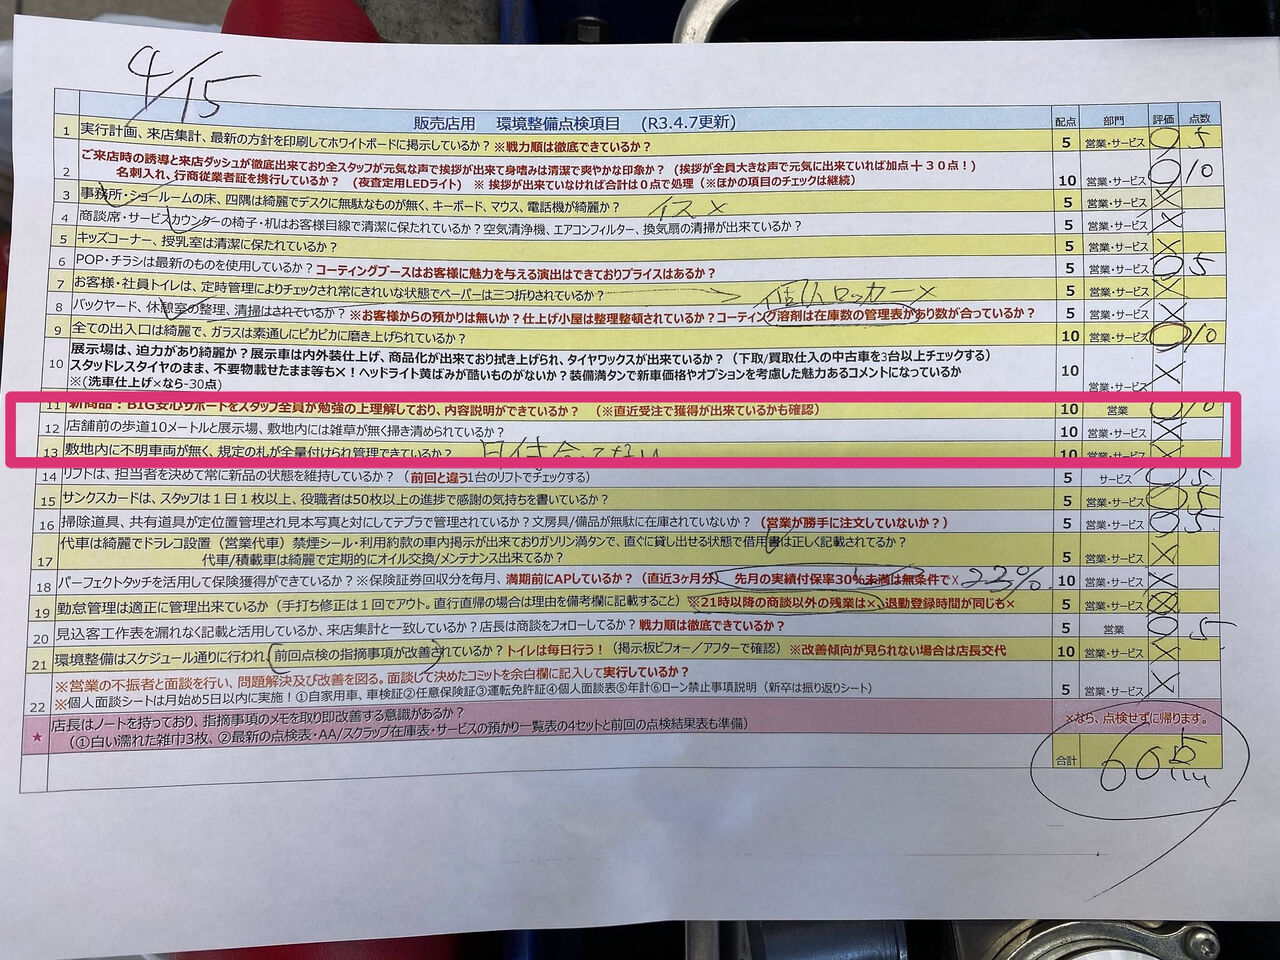 4/15
販売店用 環境整備点検項目 (R3.4.7更新) 配点 部門 評価 点数
1 実行計画、来店集計、最新の方針を印刷してホワイトボードに掲示しているか?※戦力順は徹底できているか? 5 営業・サービス ○ 5
2 ご来店時の誘導と来店ダッシュが徹底出来ており全スタッフが元気な声で挨拶が出来て身嗜みは清潔で爽やかな印象か?(挨拶が全員大きな声で元気に出来ていれば加点+30点!)
名刺入れ、行商従業者証を携行しているか?(夜査定用LEDライト) ※ 挨拶が出来ていなければ合計は0点で処理(※ほかの項目のチェックは継続) 10 営業・サービス ○ 10
3 事務所・ショールームの床、四隅は綺麗でデスクに無駄なものが無く、キーボード、マウス、電話機が綺麗か? イス× 5 営業・サービス ×
4 商談席・サービスカウンターの椅子・机はお客様目線で清潔に保たれているか?空気清浄機、エアコンフィルター、換気扇の清掃が出来ているか? 5 営業・サービス ×
5 キッズコーナー、授乳室は清潔に保たれているか? 5 営業・サービス ×
6 POP・チラシは最新のものを使用しているか?コーティングブースはお客様に魅力を与える演出はできておりプライスはあるか? 5 営業・サービス ○ 5
7 お客様・社員トイレは、定時管理によりチェックされ常にきれいな状態でペーパーは三つ折りされているか? 個人ロッカー× 5 営業・サービス ×
8 バックヤード、休憩室の整理、清掃はされているか?※お客様からの預かりは無いか?仕上げ小屋は整理整頓されているか?コーティング溶剤は在庫数の管理表があり数が合っているか? 5 営業・サービス ×
9 全ての出入口は綺麗で、ガラスは素通しにピカピカに磨き上げられているか? 10 営業・サービス ○ 10
10 展示場は、迫力があり綺麗か?展示車は内外装仕上げ、商品化が出来ており拭き上げられ、タイヤワックスが出来ているか?(下取/買取仕入の中古車を3台以上チェックする)
スタッドレスタイヤのまま、不要物載せたまま等も×!ヘッドライト黄ばみが酷いものがないか?装備満タンで新車価格やオプションを考慮した魅力あるコメントになっているか
※(洗車仕上げ×なら-30点) 10 営業・サービス ×
11 新商品:BIG安心サポートをスタッフ全員が勉強の上理解しており、内容説明ができているか? (※直近受注で獲得が出来ているかも確認) 10 営業 ○ 10
12 店舗前の歩道10メートルと展示場、敷地内には雑草が無く掃き清められているか? 10 営業・サービス ×
13 敷地内に不明車両が無く、規定の札が全量付けられ管理できているか? 日付合ってない 10 営業・サービス ×
14 リフトは、担当者を決めて常に新品の状態を維持しているか?(前回と違う1台のリフトでチェックする) 5 サービス ○ 5
15 サンクスカードは、スタッフは1日1枚以上、役職者は50枚以上の進捗で感謝の気持ちを書いているか? 5 営業・サービス ○ 5
16 掃除道具、共有道具が定位置管理され見本写真と対にしてテプラで管理されているか?文房具/備品が無駄に在庫されていないか?(営業が勝手に注文していないか?) 5 営業・サービス ○ 5
17 代車は綺麗でドラレコ設置(営業代車)禁煙シール・利用約款の車内掲示が出来ておりガソリン満タンで、直ぐに貸し出せる状態で借用書は正しく記載されてるか?
代車/積載車は綺麗で定期的にオイル交換/メンテナンス出来てるか? 5 営業・サービス ×
18 パーフェクトタッチを活用して保険獲得ができているか?※保険証券回収分を毎月、満期前にAPしているか?(直近3ヶ月分) 先月の実績付保率30%未満は無条件で× 22% 10 営業・サービス ×
19 勤怠管理は適正に管理出来ているか(手打ち修正は1回でアウト。直行直帰の場合は理由を備考欄に記載すること)※21時以降の商談以外の残業は×、退勤登録時間が同じも× 5 営業・サービス
20 見込客工作表を漏れなく記載と活用しているか、来店集計と一致しているか?店長は商談をフォローしてるか?戦力順は徹底できているか? 5 営業 ○ 5
21 環境整備はスケジュール通りに行われ、前回点検の指摘事項が改善されているか?トイレは毎日行う!(掲示板ビフォー/アフターで確認)※改善傾向が見られない場合は店長交代 10 営業・サービス ×
22 ※営業の不振者と面談を行い、問題解決及び改善を図る。面談して決めたコミットを余白欄に記入して実行しているか?
※個人面談シートは月始め5日以内に実施!①自家用車、車検証②任意保険証③運転免許証④個人面談表⑤年計⑥ローン禁止事項説明(新卒は振り返りシート) 5 営業・サービス ×
★ 店長はノートを持っており、指摘事項のメモを取り即改善する意識があるか? ×なら、点検せずに帰ります。
(①白い濡れた雑巾3枚、②最新の点検表・AA/スクラップ在庫表・サービスの預かり一覧表の4セットと前回の点検結果表も準備)
合計 60点